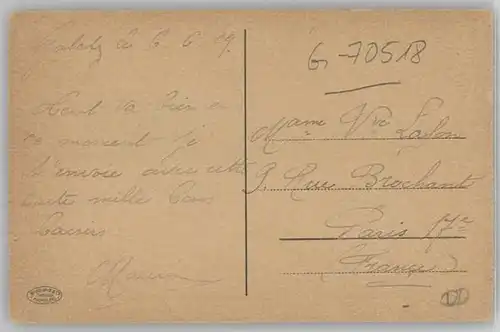 le 6. 6. 19.
Tout va bien en
ce moment je
t'envoie avec cette
carte mille bons
baisers
Maurice
G-70518
Mame Vve
9. Rue Brochant
Paris 17e
(France)